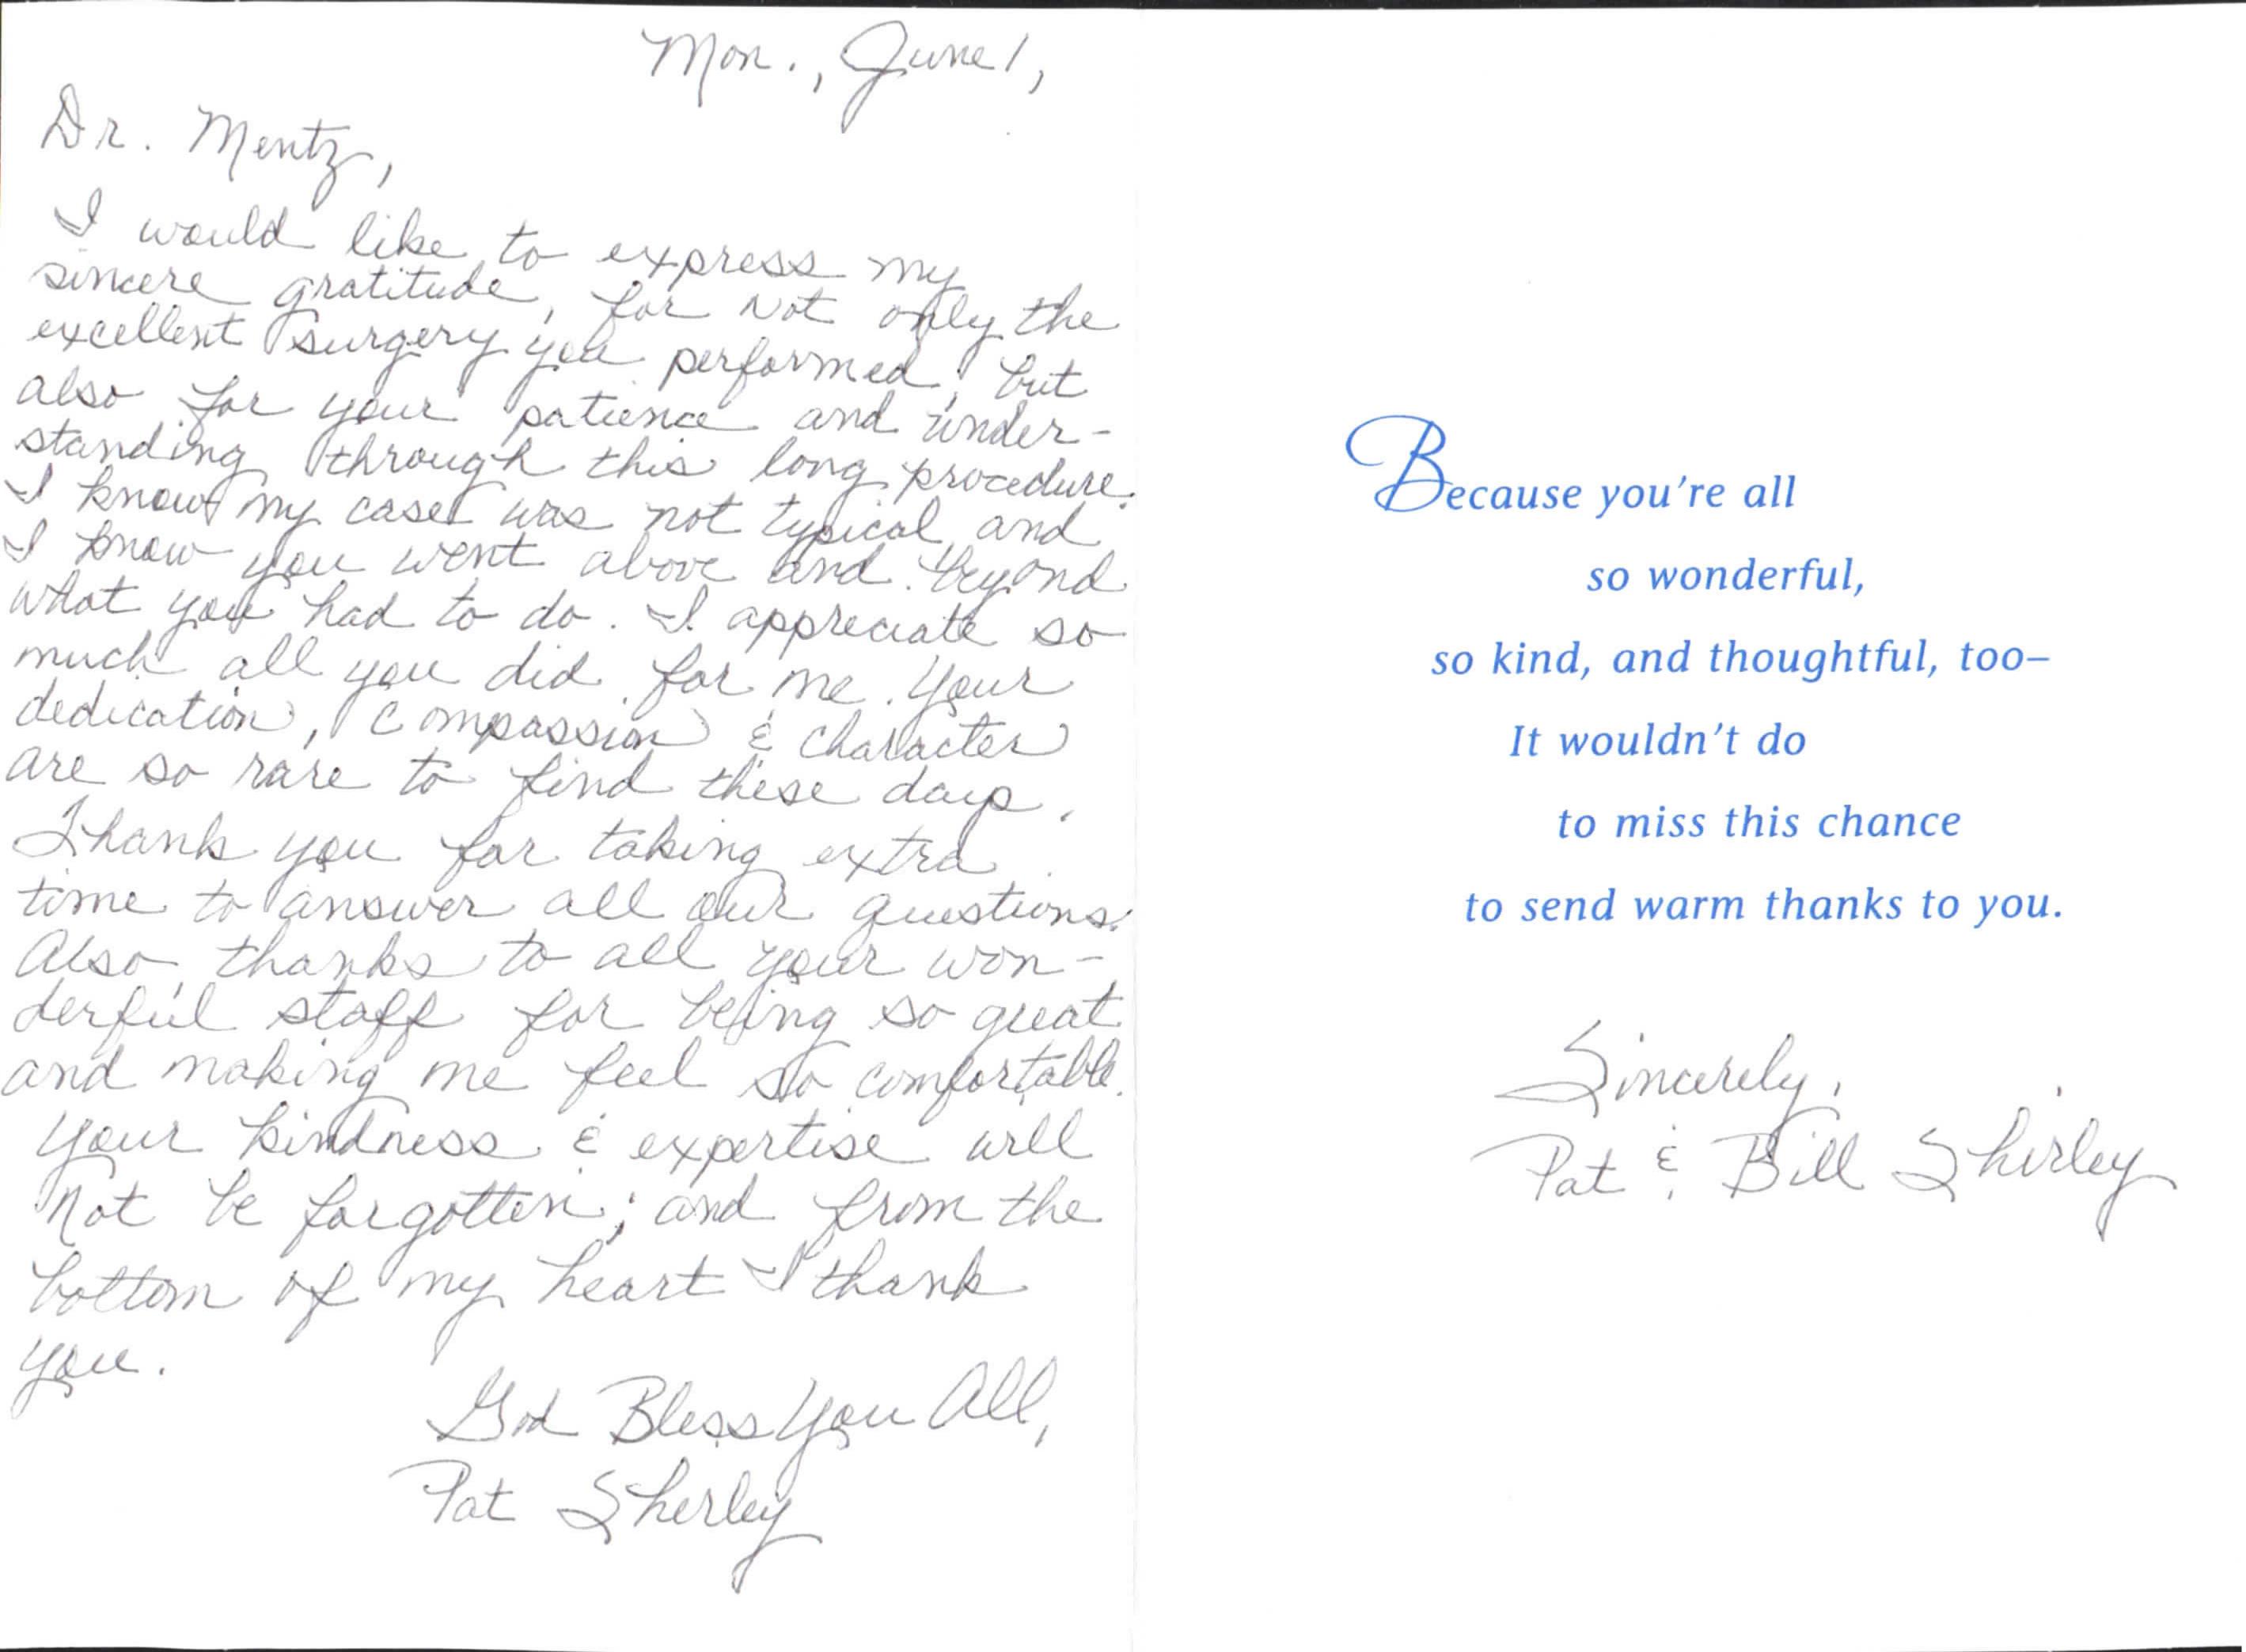 Mon., June 1,
Dr. Mentz,
I would like to express my
sincere gratitude, for not only the
excellent surgery you performed, but
also for your patience and under-
standing through this long procedure.
I know my case was not typical and
I know you went above and beyond
what you had to do. I appreciate so
much all you did for me. Your
dedication, compassion & character
are so rare to find these days.
Thank you for taking extra
time to answer all our questions.
Also, thanks to all your won-
derful staff for being so great
and making me feel so comfortable.
Your kindness & expertise will
not be forgotten; and from the
bottom of my heart I thank
you.
God Bless You All,
Pat Shirley
Because you're all
so wonderful,
so kind, and thoughtful, too–
It wouldn't do
to miss this chance
to send warm thanks to you.
Sincerely,
Pat & Bill Shirley